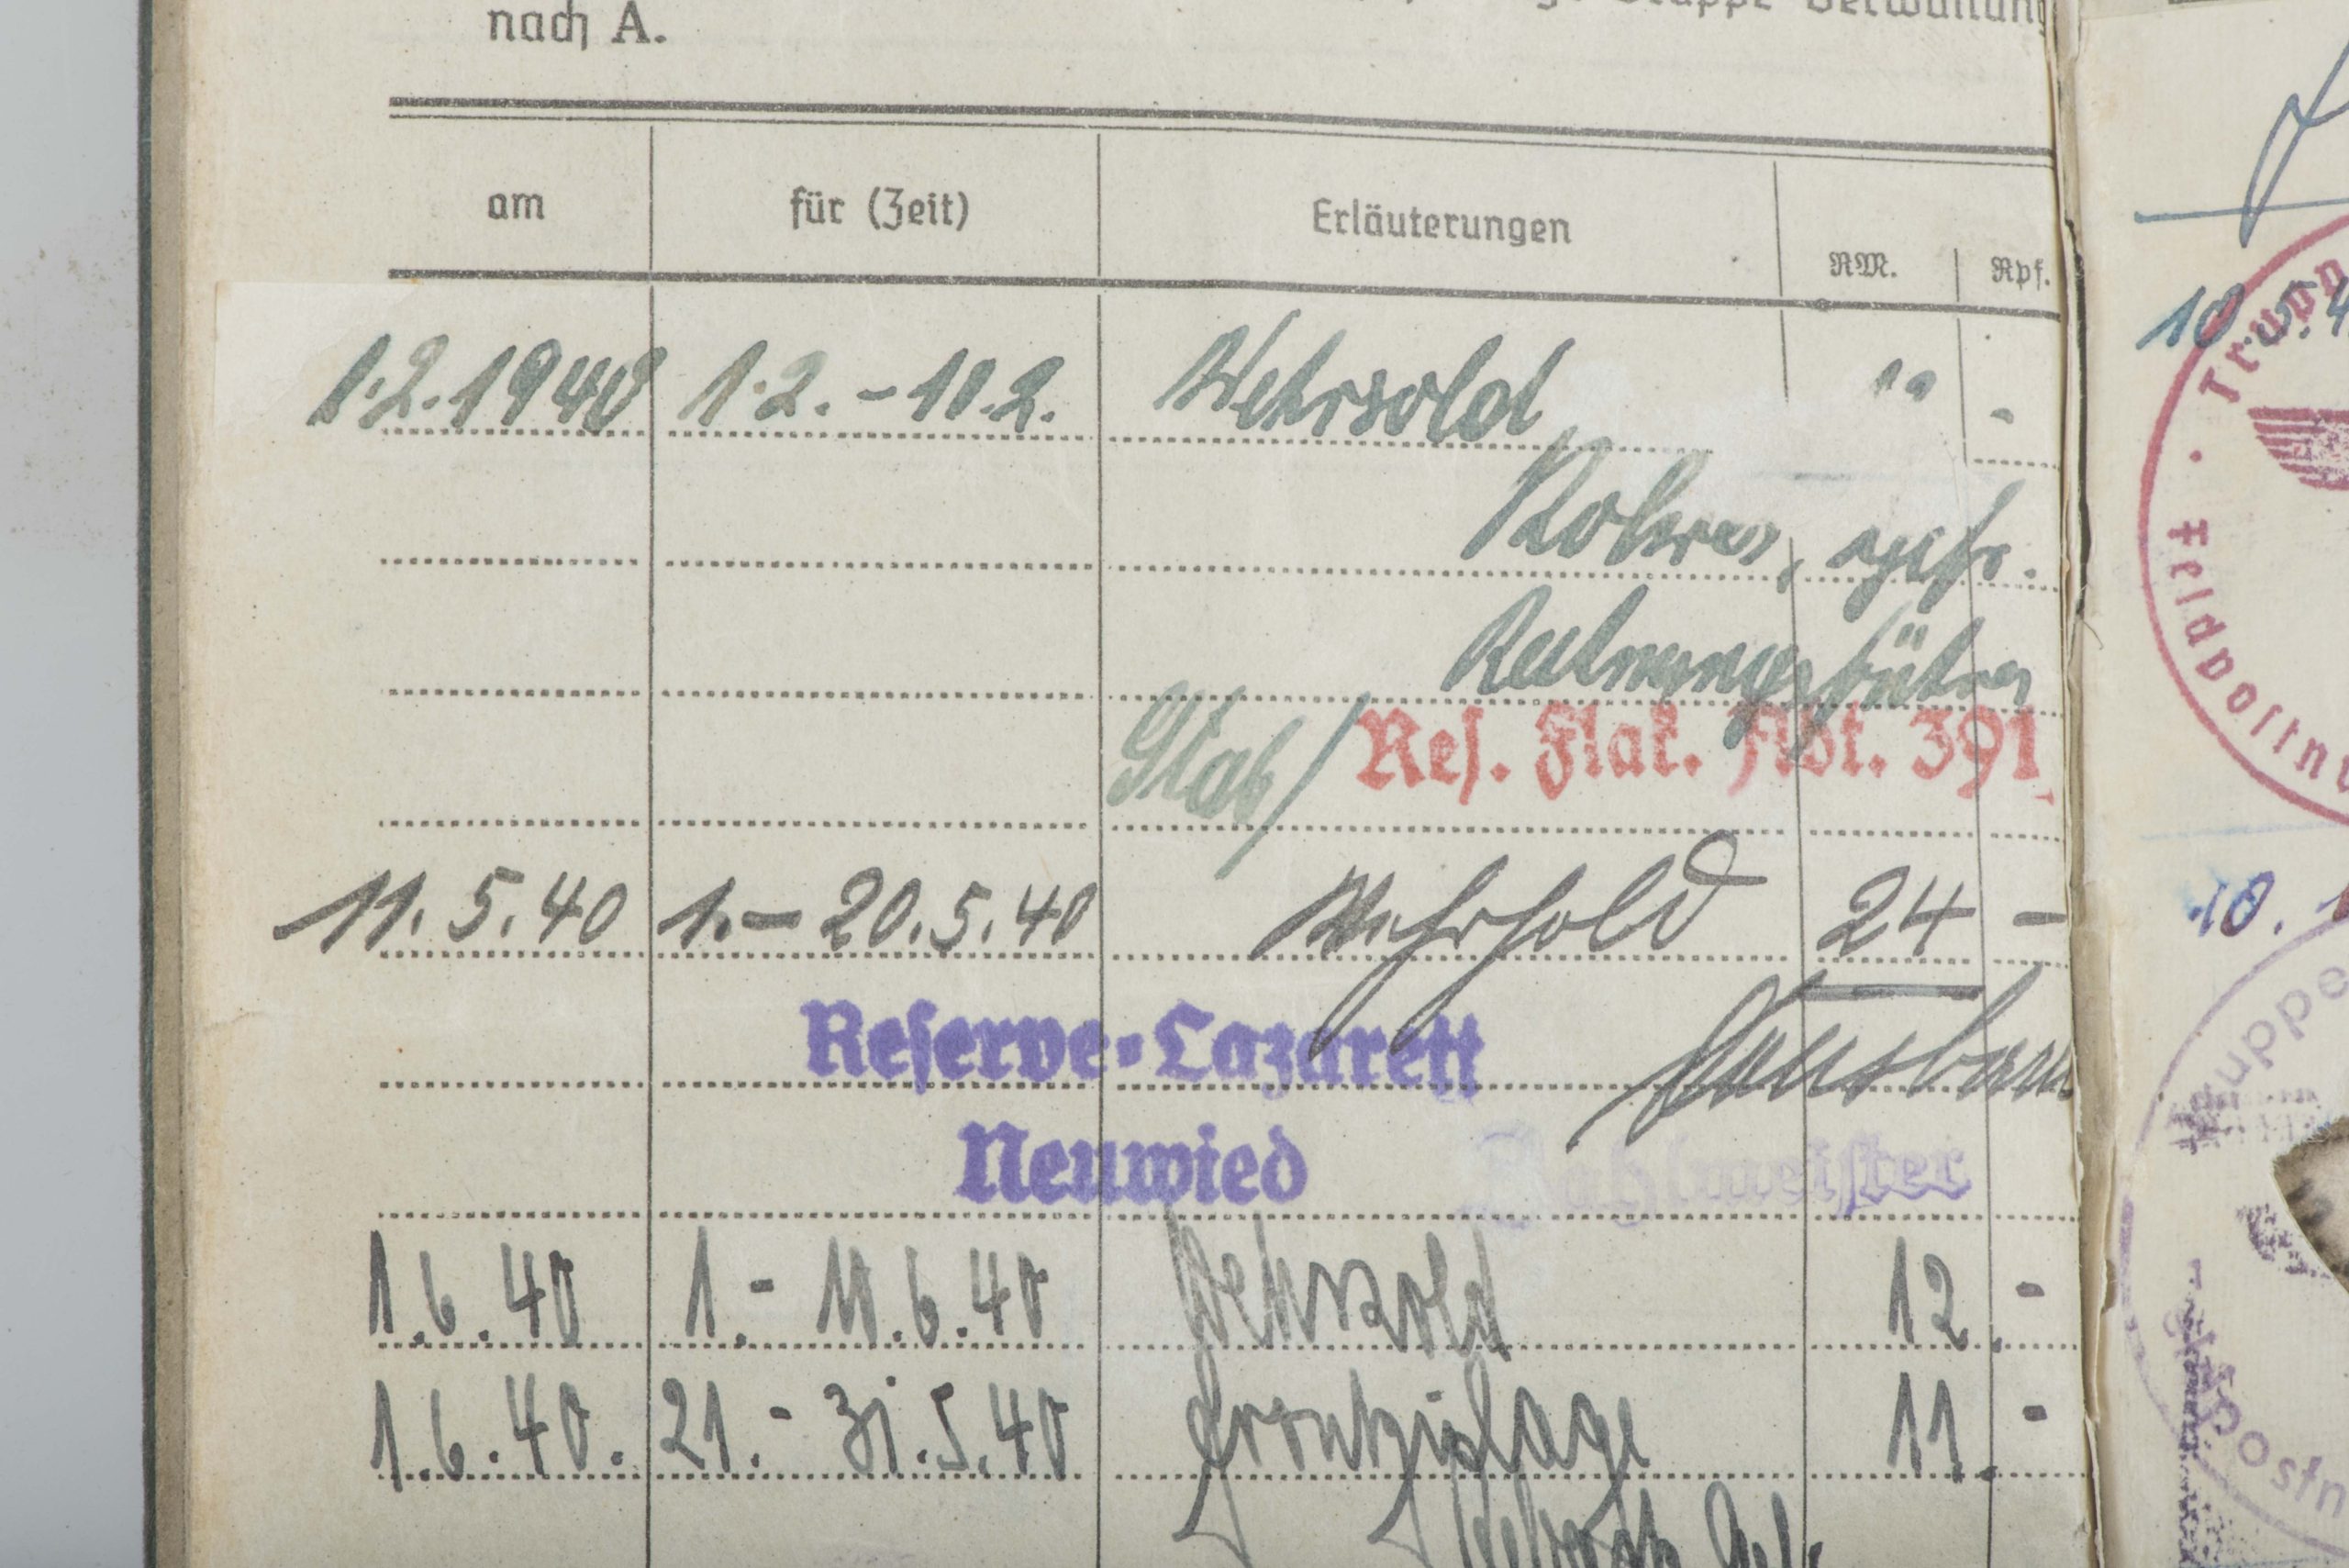 nach A.
am für (Zeit) Erläuterungen RM. Rpf.
1.2.1940 1.2. - 10.2. Wehrsold -
Rechnungsführer
Stab/ Res. Flak. Abt. 391
11.5.40 1. - 20.5.40 Wehrsold 24 -
Reserve-Lazarett
Neuwied Zahlmeister
1.6.40 1. - 10.6.40 Wehrsold 12.-
1.6.40. 21. - 31.5.40 Frontzulage 11.-
10.5.4
Trupp
Feldpostn
10.